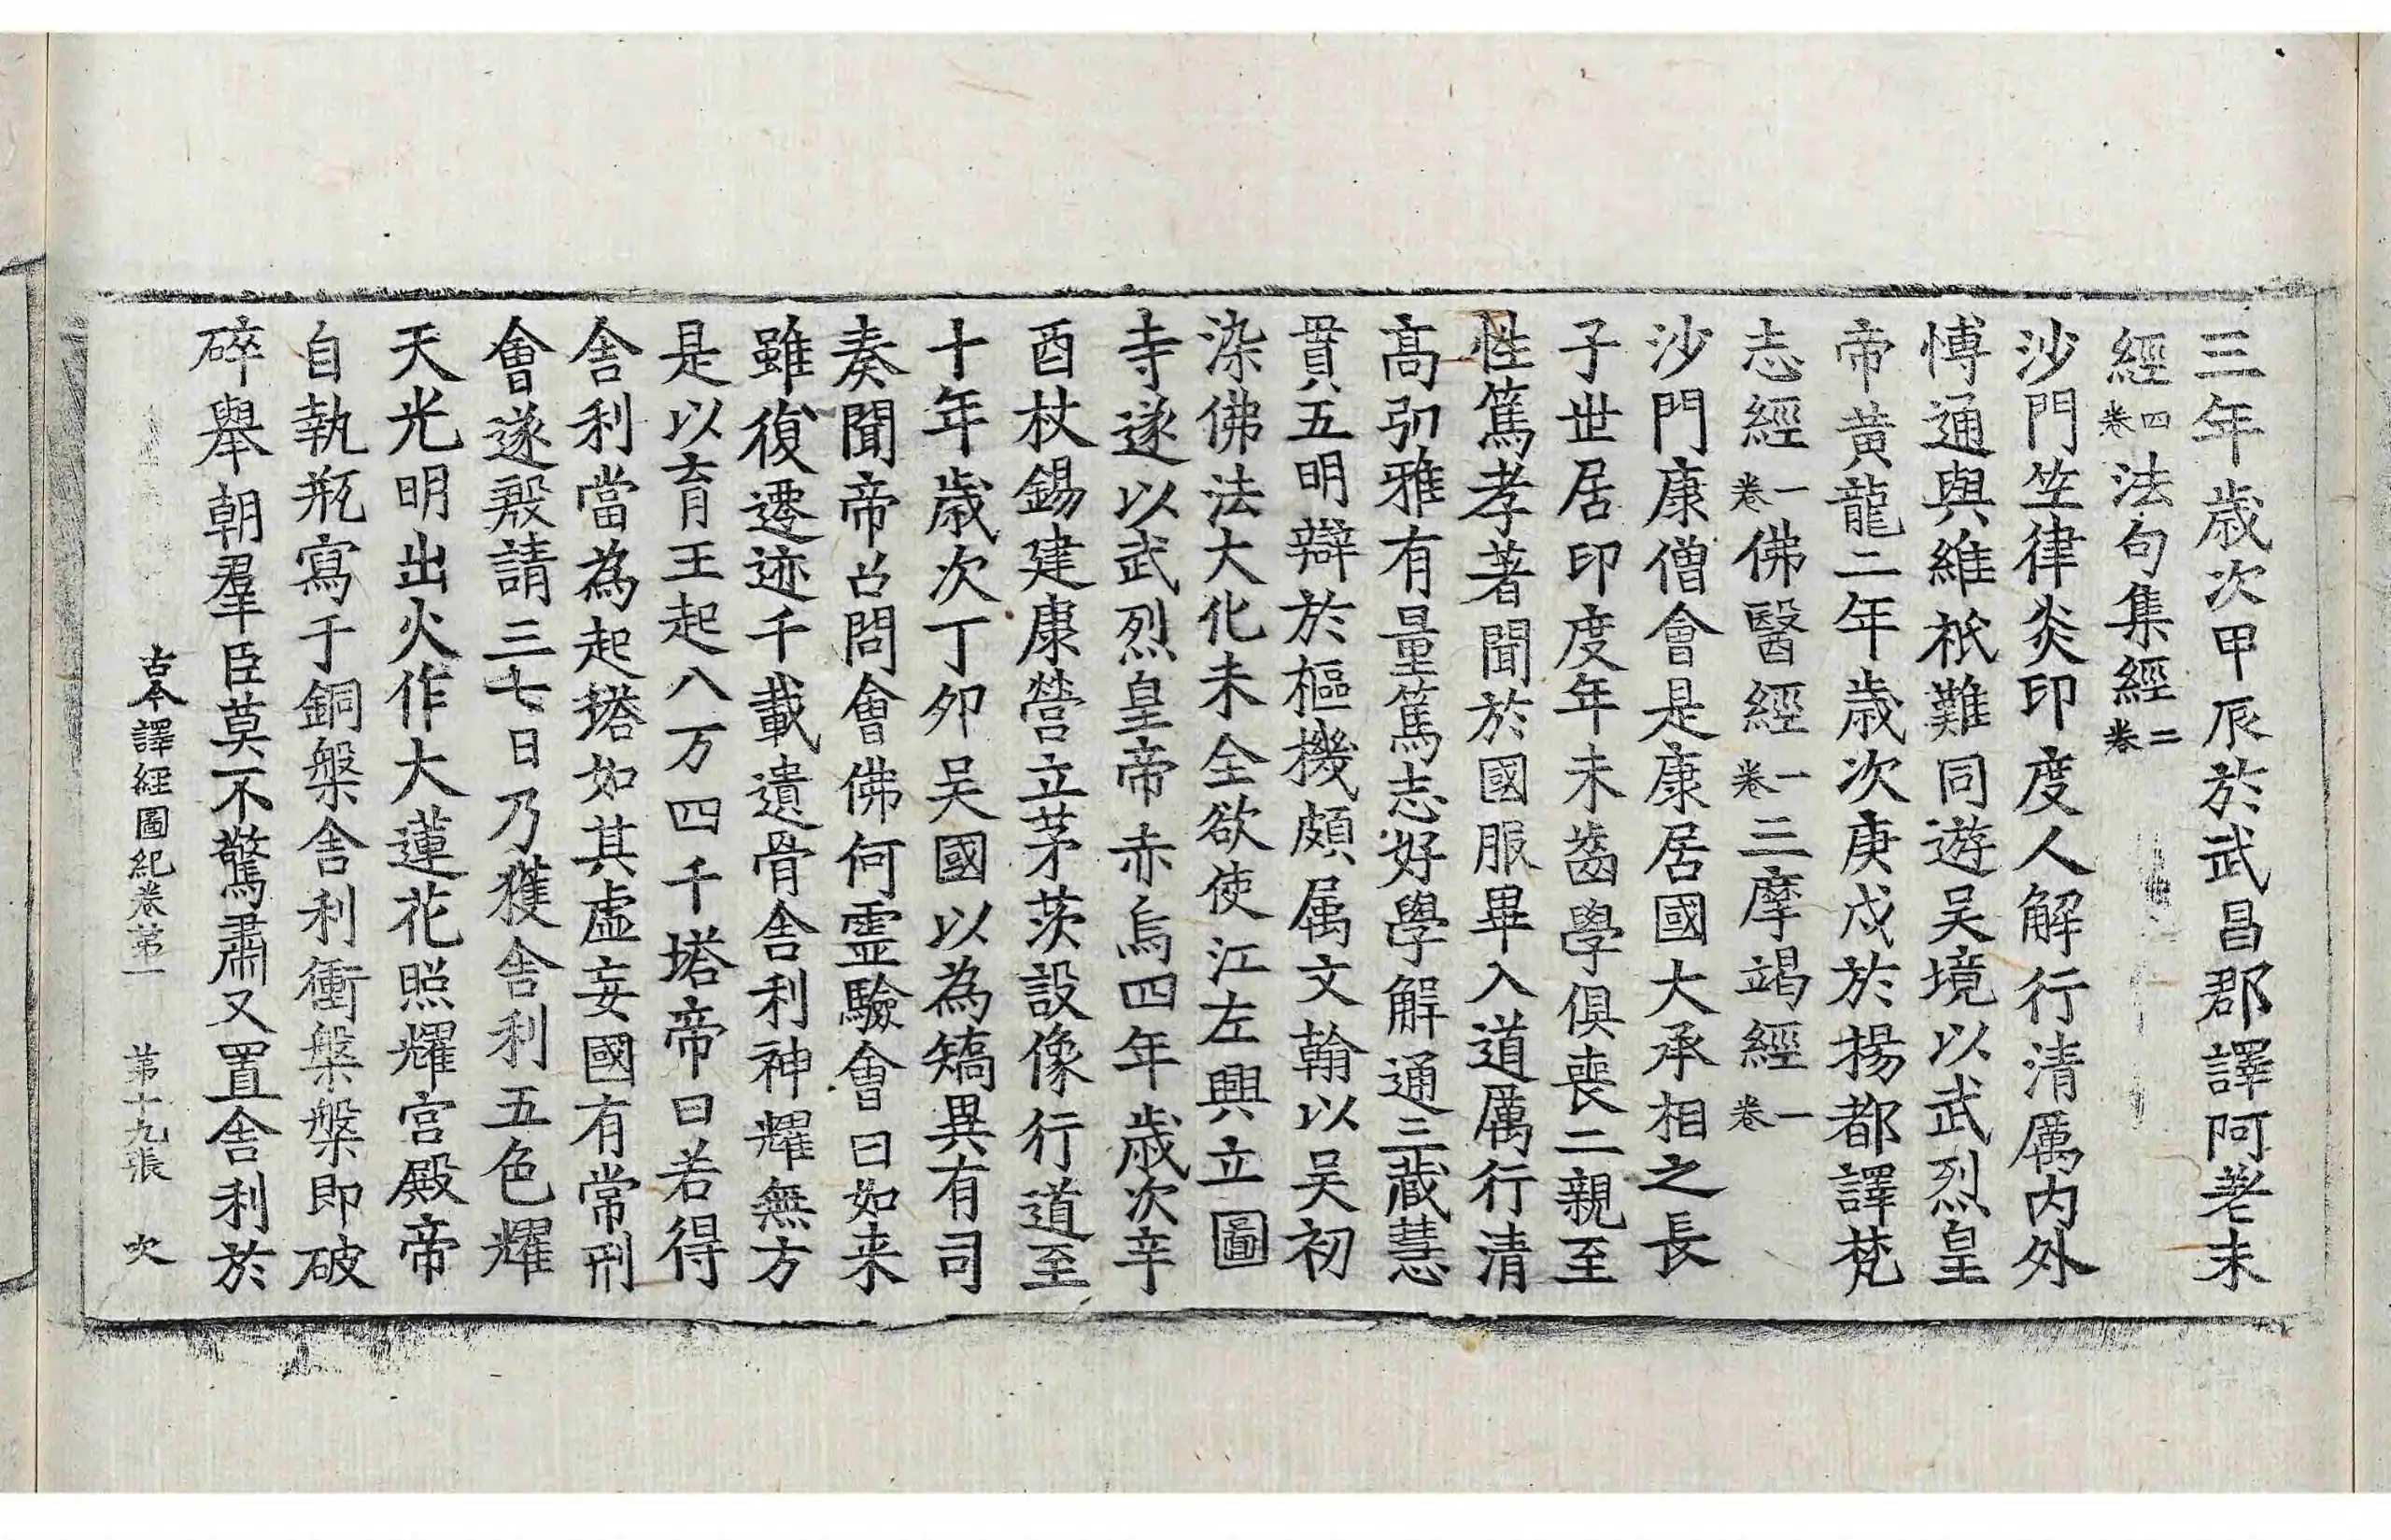 三年歲次甲辰於武昌郡譯阿差末
經四卷法句集經二卷
沙門竺律炎印度人解行清厲内外
博通與維祇難同遊吴境以武烈皇
帝黄龍二年歲次庚戌於揚都譯梵
志經一卷佛醫經一卷三摩竭經一卷
沙門康僧會是康居國大承相之長
子世居印度年未齒學俱喪二親至
性篤孝著聞於國服畢入道厲行清
髙引雅有量篤志好學解通三蔵慧
貫五明辯於樞機頗属文翰以吴初
染佛法大化未全欲使江左興立圖
寺遂以武烈皇帝赤烏四年歲次辛
酉杖錫建康營立茅茨設像行道至
十年歲次丁卯吴國以為矯異有司
奏聞帝召問會佛何靈驗會曰如来
雖復遷迹千載遺骨舍利神耀無方
是以育王起八万四千塔帝曰若得
舍利當為起塔如其虛妄國有常刑
會遂殷請三七日乃獲舍利五色耀
天光明出火作大蓮花照耀宫殿帝
自執瓶寫于銅槃舍利衝槃槃即破
碎舉朝羣臣莫不驚肅又置舍利於
古今譯經圖紀卷第一 第十九張 吹